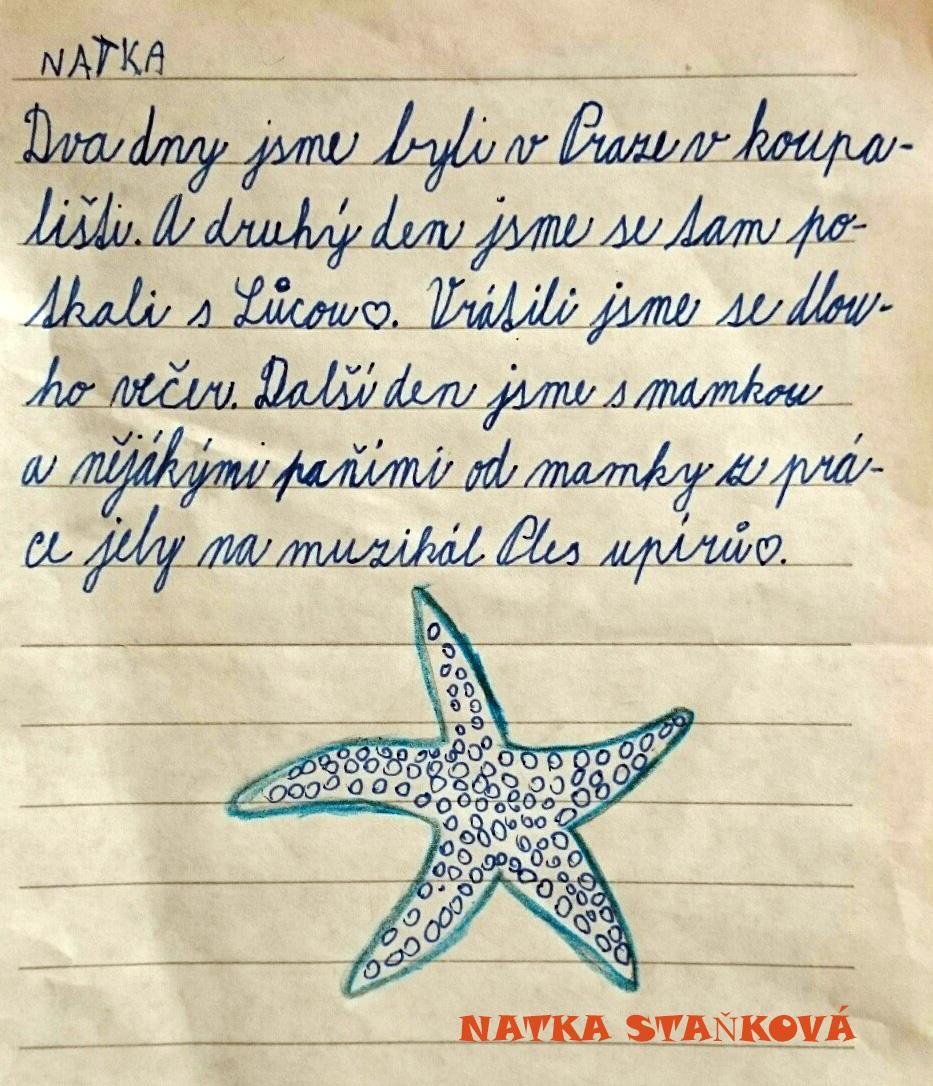 NATKA
Dva dny jsme byli v Praze v koupa-
lišti. A druhý den jsme se tam po-
tkali s Lůcou♡. Vrátili jsme se dlou-
ho večer. Další den jsme s mamkou
a nějákými paňími od mamky z prá-
ce jely na muzikál Ples upírů♡.
NATKA STAŇKOVÁ